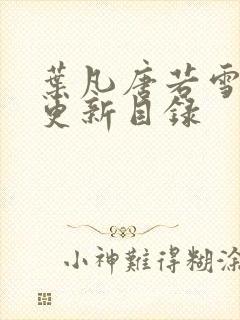 葉凡唐若雪
更新目録
小神難得糊涂